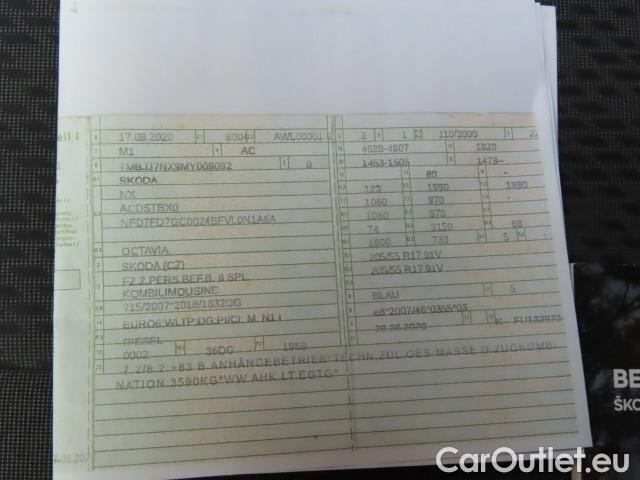 17.08.2020 8004 AWL00001 2 1 110/3000
M1 AC 4689-4807 1829
TMBJJ7NX9MY009092 0 1453-1505 1473-
SKODA 80 -
NX 123 1990 1990
ACDSTBX0 1060 970 -
NFD7FD7GC0024BFVL0N1A6A 1060 970 -
74 3150 68
OCTAVIA 1600 730 5 -
SKODA (CZ) 205/55 R17 91V
FZ.Z.PERS.BEF.B. 8 SPL. 205/55 R17 91V
KOMBILIMOUSINE
715/2007*2018/1832DG BLAU 5
EURO6;WLTP;DG;PI/CI, M, N1 I e8*2007/46*0355*03
DIESEL 28.06.2020 K
0002 36DG 1968
7.2/8.2:+83 B.ANHÄNGEBETRIEB*TECHN.ZUL.GES.MASSE D.ZUGKOMBI
NATION:3590KG*WW.AHK.LT.EGTG*
BE
ŠKO
CarOutlet.eu